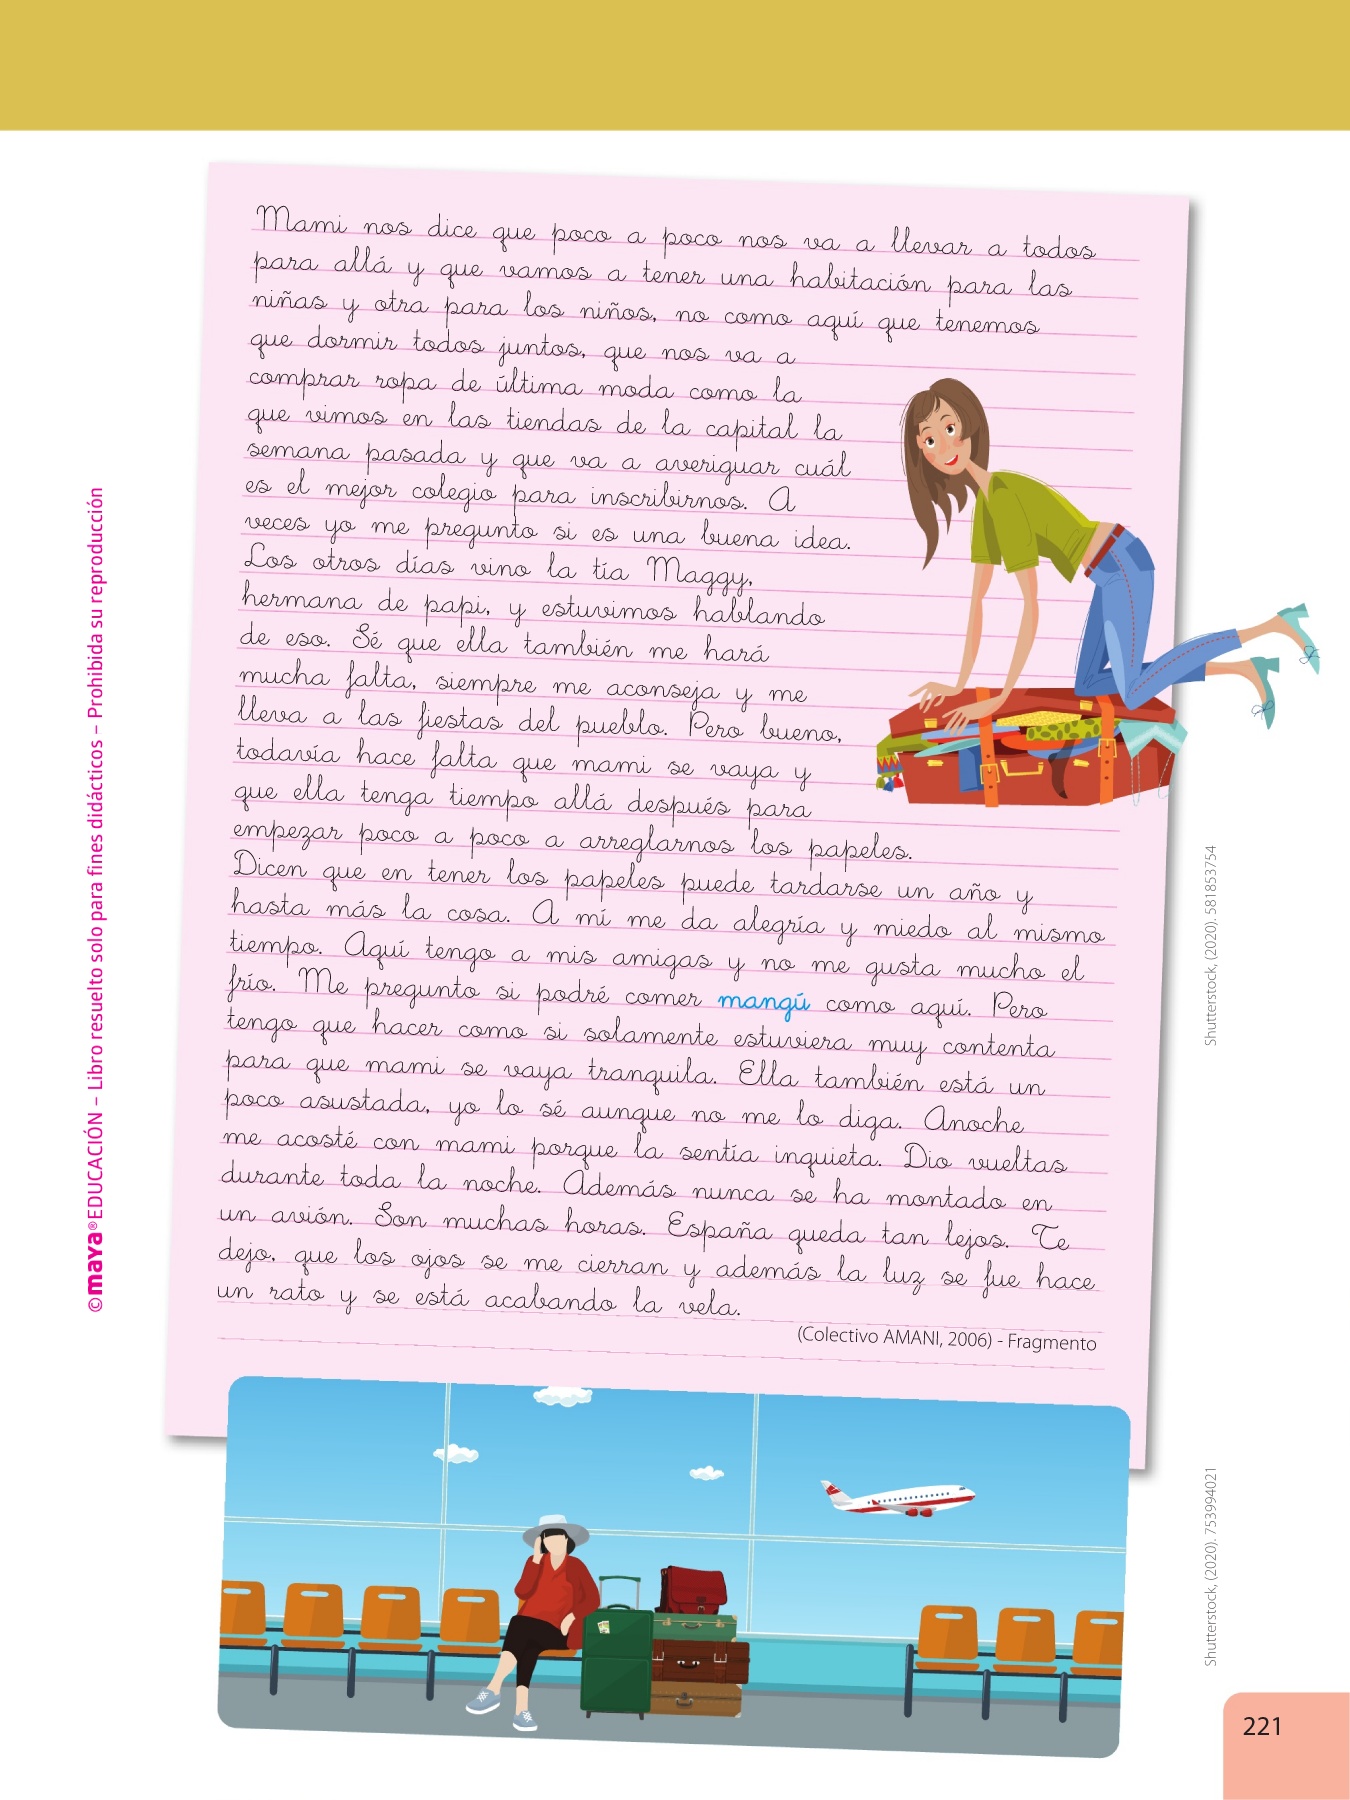 Mami nos dice que poco a poco nos va a llevar a todos
para allá y que vamos a tener una habitación para las
niñas y otra para los niños, no como aquí que tenemos
que dormir todos juntos, que nos va a
comprar ropa de última moda como la
que vimos en las tiendas de la capital la
semana pasada y que va a averiguar cuál
es el mejor colegio para inscribirnos. A
veces yo me pregunto si es una buena idea.
Los otros días vino la tía Maggy,
hermana de papi, y estuvimos hablando
de eso. Sé que ella también me hará
mucha falta, siempre me aconseja y me
lleva a las fiestas del pueblo. Pero bueno,
todavía hace falta que mami se vaya y
que ella tenga tiempo allá después para
empezar poco a poco a arreglarnos los papeles.
Dicen que en tener los papeles puede tardarse un año y
hasta más la cosa. A mí me da alegría y miedo al mismo
tiempo. Aquí tengo a mis amigas y no me gusta mucho el
frío. Me pregunto si podré comer mangú como aquí. Pero
tengo que hacer como si solamente estuviera muy contenta
para que mami se vaya tranquila. Ella también está un
poco asustada, yo lo sé aunque no me lo diga. Anoche
me acosté con mami porque la sentía inquieta. Dio vueltas
durante toda la noche. Además nunca se ha montado en
un avión. Son muchas horas. España queda tan lejos. Te
dejo, que los ojos se me cierran y además la luz se fue hace
un rato y se está acabando la vela.
(Colectivo AMANI, 2006) - Fragmento
©maya®EDUCACIÓN – Libro resuelto solo para fines didácticos – Prohibida su reproducción
Shutterstock, (2020). 581853754
Shutterstock, (2020). 753994021
221